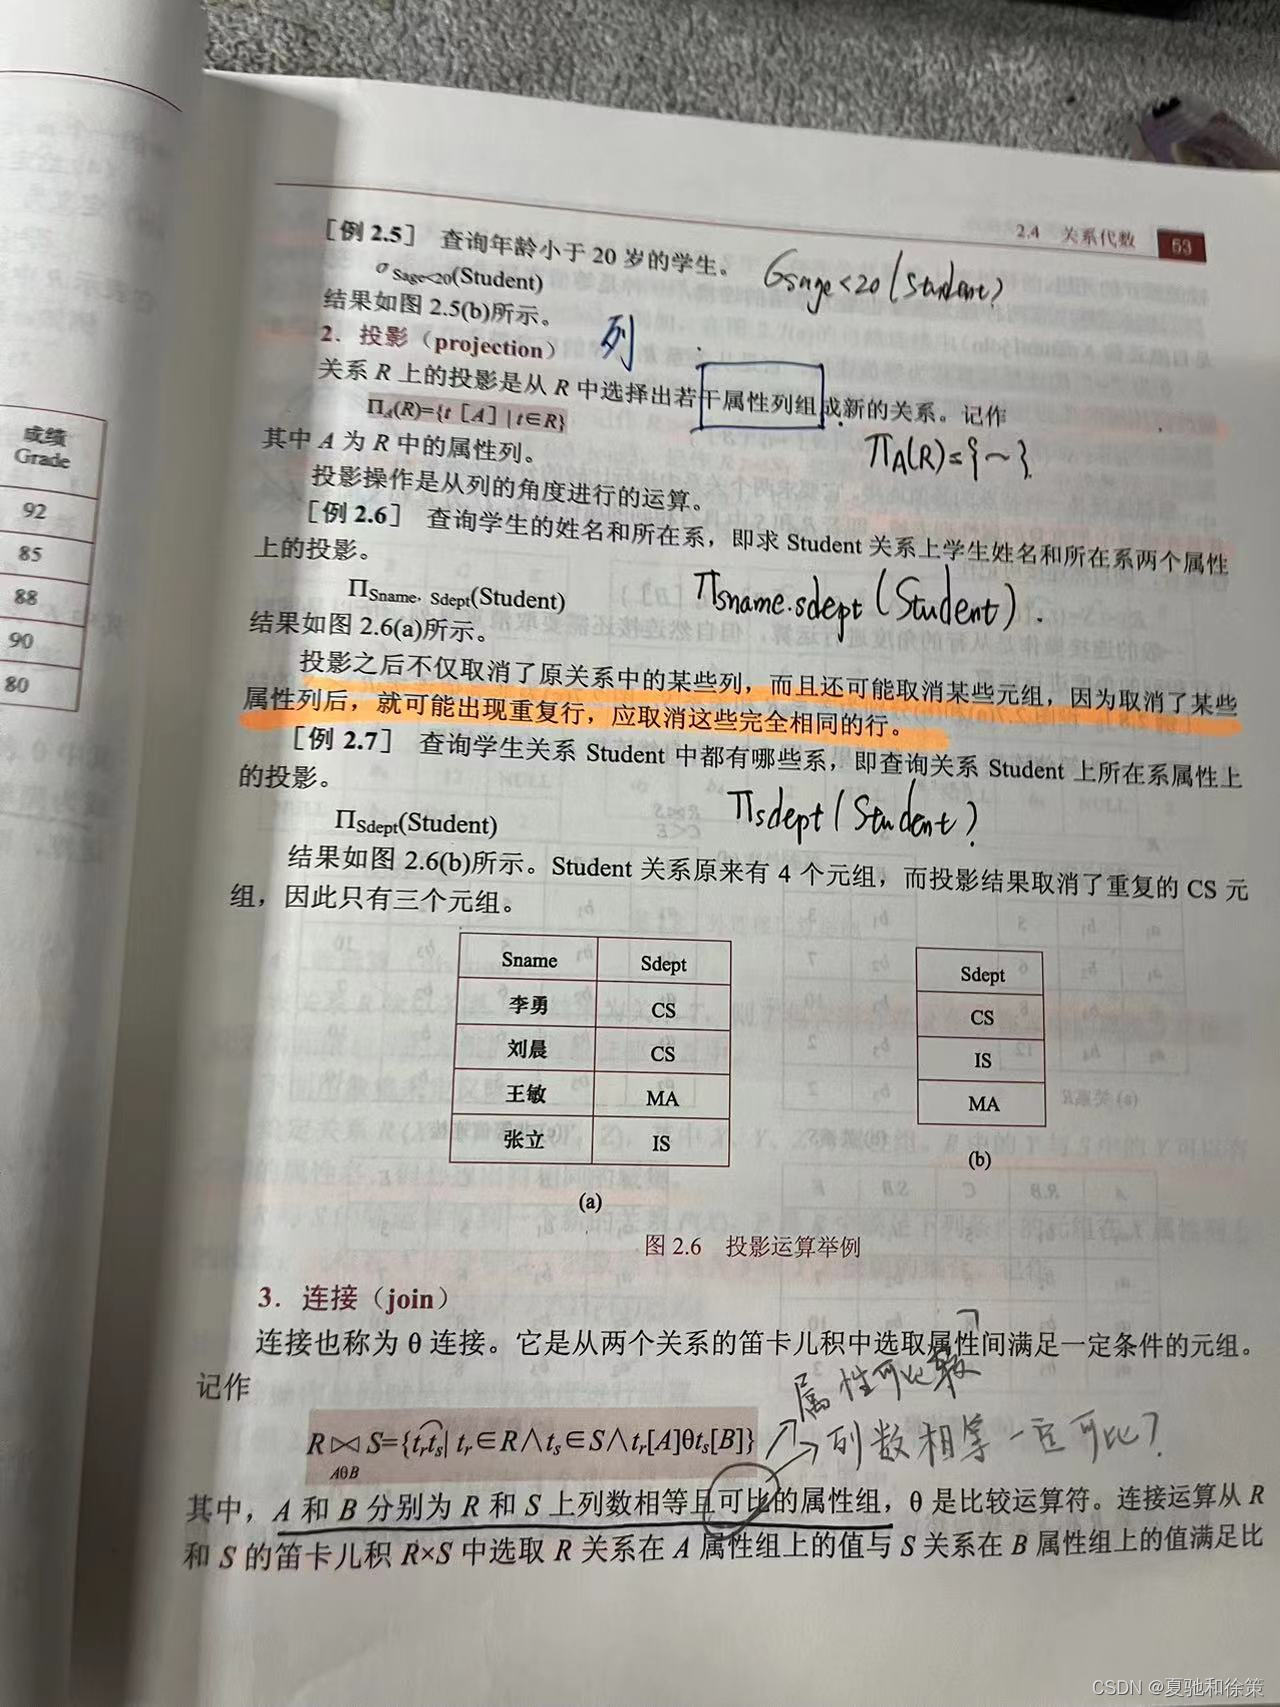 2.4 关系代数 53
[例 2.5] 查询年龄小于 20 岁的学生。
σSage<20(Student)
σsage<20(Student)
结果如图 2.5(b)所示。
2. 投影（projection）
列
关系 R 上的投影是从 R 中选择出若干属性列组成新的关系。记作
ΠA(R)={t [A] | t∈R}
ΠA(R)={~}.
其中 A 为 R 中的属性列。
投影操作是从列的角度进行的运算。
[例 2.6] 查询学生的姓名和所在系，即求 Student 关系上学生姓名和所在系两个属性
上的投影。
ΠSname, Sdept(Student)
Πsname.sdept(Student).
结果如图 2.6(a)所示。
投影之后不仅取消了原关系中的某些列，而且还可能取消某些元组，因为取消了某些
属性列后，就可能出现重复行，应取消这些完全相同的行。
[例 2.7] 查询学生关系 Student 中都有哪些系，即查询关系 Student 上所在系属性上
的投影。
ΠSdept(Student)
Πsdept(Student)
结果如图 2.6(b)所示。Student 关系原来有 4 个元组，而投影结果取消了重复的 CS 元
组，因此只有三个元组。
成绩
Grade
92
85
88
90
80
Sname Sdept
李勇 CS
刘晨 CS
王敏 MA
张立 IS
(a)
Sdept
CS
IS
MA
(b)
图 2.6 投影运算举例
3. 连接（join）
连接也称为 θ 连接。它是从两个关系的笛卡儿积中选取属性间满足一定条件的元组。
记作
属性可比较
R⋈S={trts| tr∈R∧ts∈S∧tr[A]θts[B]}
AθB
列数相等一定可比?
其中，A 和 B 分别为 R 和 S 上列数相等且可比的属性组，θ 是比较运算符。连接运算从 R
和 S 的笛卡儿积 R×S 中选取 R 关系在 A 属性组上的值与 S 关系在 B 属性组上的值满足比
CSDN @夏驰和徐策